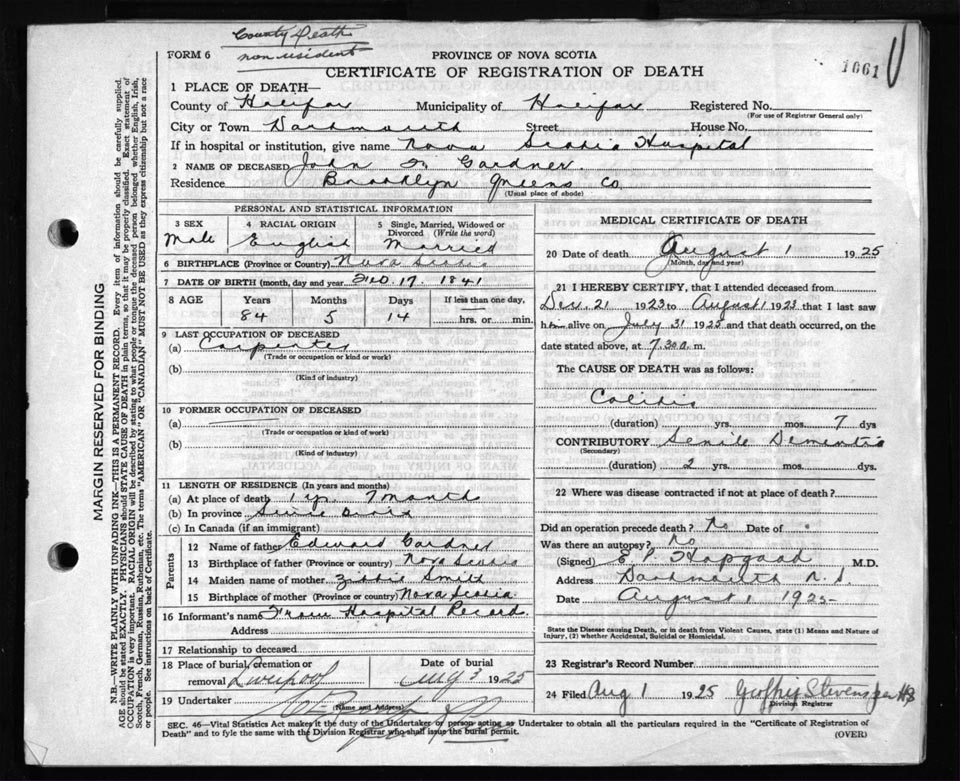 County Death
non resident
FORM 6
PROVINCE OF NOVA SCOTIA
CERTIFICATE OF REGISTRATION OF DEATH
1661
1 PLACE OF DEATH—
County of Halifax Municipality of Halifax Registered No.
(For use of Registrar General only)
City or Town Dartmouth Street House No.
If in hospital or institution, give name Nova Scotia Hospital
2 NAME OF DECEASED John Gardner
Residence Brooklyn Queens Co.
(Usual place of abode)
PERSONAL AND STATISTICAL INFORMATION
3 SEX 4 RACIAL ORIGIN 5 Single, Married, Widowed or Divorced (Write the word)
Male English Married
6 BIRTHPLACE (Province or Country) Nova Scotia
7 DATE OF BIRTH (month, day and year) Feb. 17. 1841
8 AGE Years Months Days If less than one day,
84 5 14 hrs. or min.
9 LAST OCCUPATION OF DECEASED
(a) Carpenter
(Trade or occupation or kind of work)
(b)
(Kind of industry)
10 FORMER OCCUPATION OF DECEASED
(a)
(Trade or occupation or kind of work)
(b)
(Kind of industry)
11 LENGTH OF RESIDENCE (In years and months)
(a) At place of death 1 yr. 7 month
(b) In province Since Birth
(c) In Canada (if an immigrant)
Parents
12 Name of father Edward Gardner
13 Birthplace of father (Province or Country) Nova Scotia
14 Maiden name of mother Smith
15 Birthplace of mother (Province or Country) Nova Scotia
16 Informant's name From Hospital Record.
Address
17 Relationship to deceased
18 Place of burial, cremation or removal Liverpool Date of burial Aug 3 1925
19 Undertaker
(Name and Address)
MEDICAL CERTIFICATE OF DEATH
20 Date of death August 1 1925
(Month, day and year)
21 I HEREBY CERTIFY, that I attended deceased from
Dec. 21 1923 to August 1 1923 that I last saw
him alive on July 31 1925 and that death occurred, on the
date stated above, at 7.30 a. m.
The CAUSE OF DEATH was as follows:
Colitis
(duration) yrs. mos. 7 dys
CONTRIBUTORY Senile Dementia
(Secondary)
(duration) 2 yrs. mos. dys.
22 Where was disease contracted if not at place of death?
Did an operation precede death? No Date of
Was there an autopsy? No
(Signed) E. P. Hopgood M.D.
Address Dartmouth N.S.
Date August 1 1925
State the Disease causing Death, or in death from Violent Causes, state (1) Means and Nature of
Injury, (2) whether Accidental, Suicidal or Homicidal.
23 Registrar's Record Number
24 Filed Aug 1 1925 Geoffrey Stevens
Division Registrar
SEC. 46—Vital Statistics Act makes it the duty of the Undertaker or person acting as Undertaker to obtain all the particulars required in the "Certificate of Registration of
Death" and to fyle the same with the Division Registrar who shall issue the burial permit.
(OVER)
MARGIN RESERVED FOR BINDING
N.B.—WRITE PLAINLY WITH UNFADING INK—THIS IS A PERMANENT RECORD. Every item of information should be carefully supplied.
AGE should be stated EXACTLY. PHYSICIANS should STATE CAUSE OF DEATH in plain terms, so that it may be properly classified. Exact statement of
OCCUPATION is very important. RACIAL ORIGIN will be described by stating to what people or tongue the deceased person belonged whether English, Irish,
Scotch, French, German, Russian, Ruthenian, etc. The terms "AMERICAN" OR "CANADIAN" MUST NOT BE USED as they express citizenship but not a race
or people. See instructions on back of Certificate.